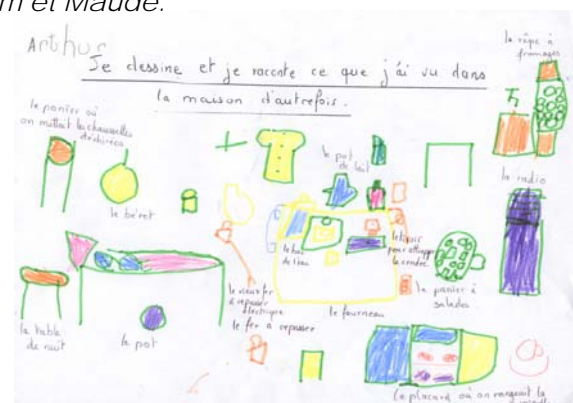 m et Maude.
Arthur
Je dessine et je raconte ce que j'ai vu dans
la maison d'autrefois.
la râpe à
fromages
le panier où
on mettait les chaussettes
le béret
le pot
de lait
la radio
le bac
de l'eau
le tapis
pour attraper
la cendre
le panier à
salades
le vieux fer
à repasser
électrique
le fer à repasser
le fourneau
la table
de nuit
le pot
le placard où on rangeait la